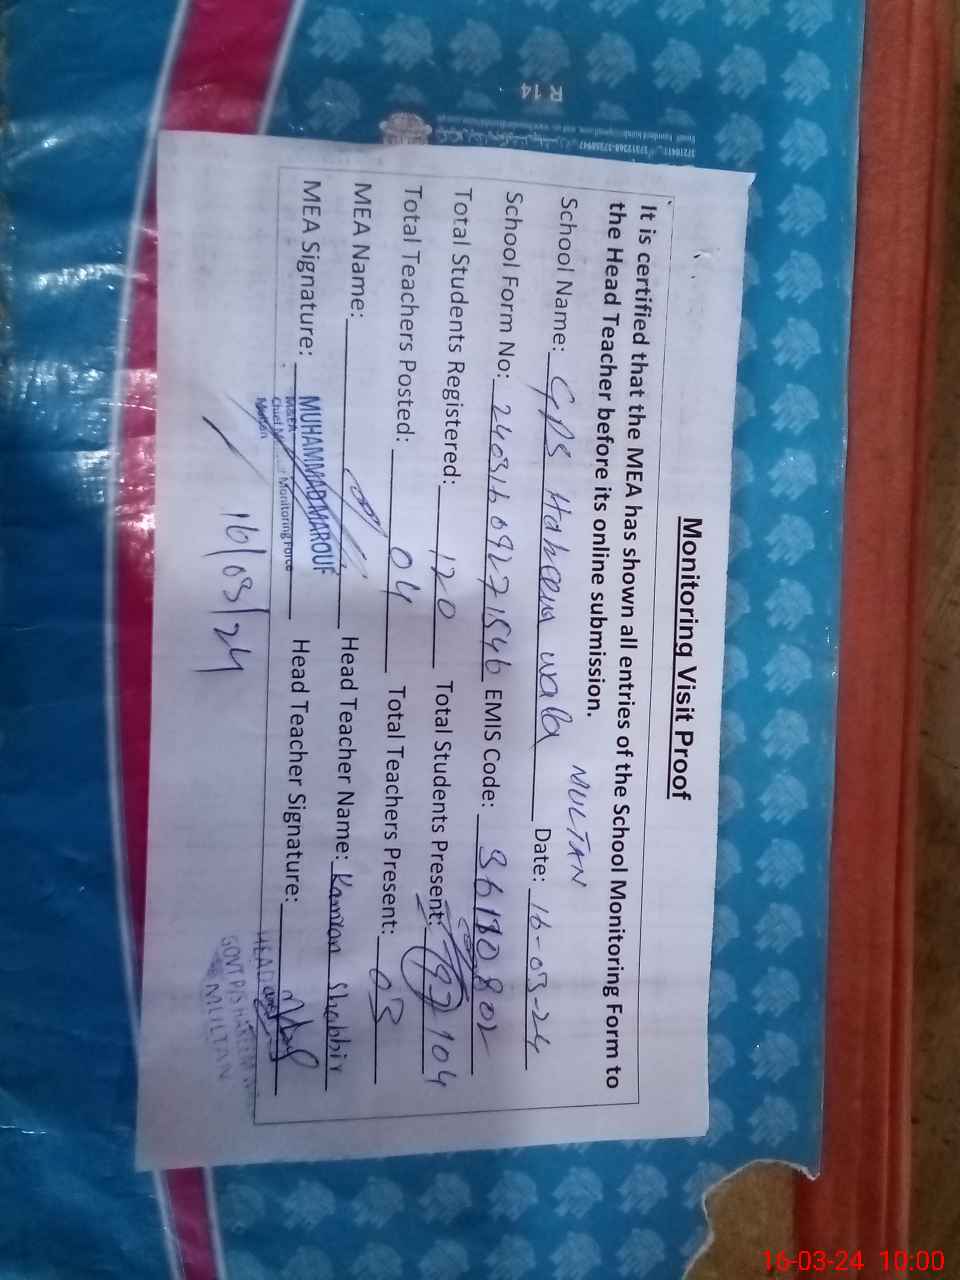 R 14
Monitoring Visit Proof
It is certified that the MEA has shown all entries of the School Monitoring Form to
the Head Teacher before its online submission.
MULTAN
School Name: GPS wala Date: 16-03-24
School Form No: 24031609271546 EMIS Code:
Total Students Registered: 120 Total Students Present: 104
Total Teachers Posted: 04 Total Teachers Present: 03
MEA Name: Head Teacher Name: Kamran Shabbir
MEA Signature: Head Teacher Signature:
MUHAMMAD MAROUF
Monitoring Force
Multan
HEAD
GOVT P/S
MULTAN
16/03/24
16-03-24 10:00